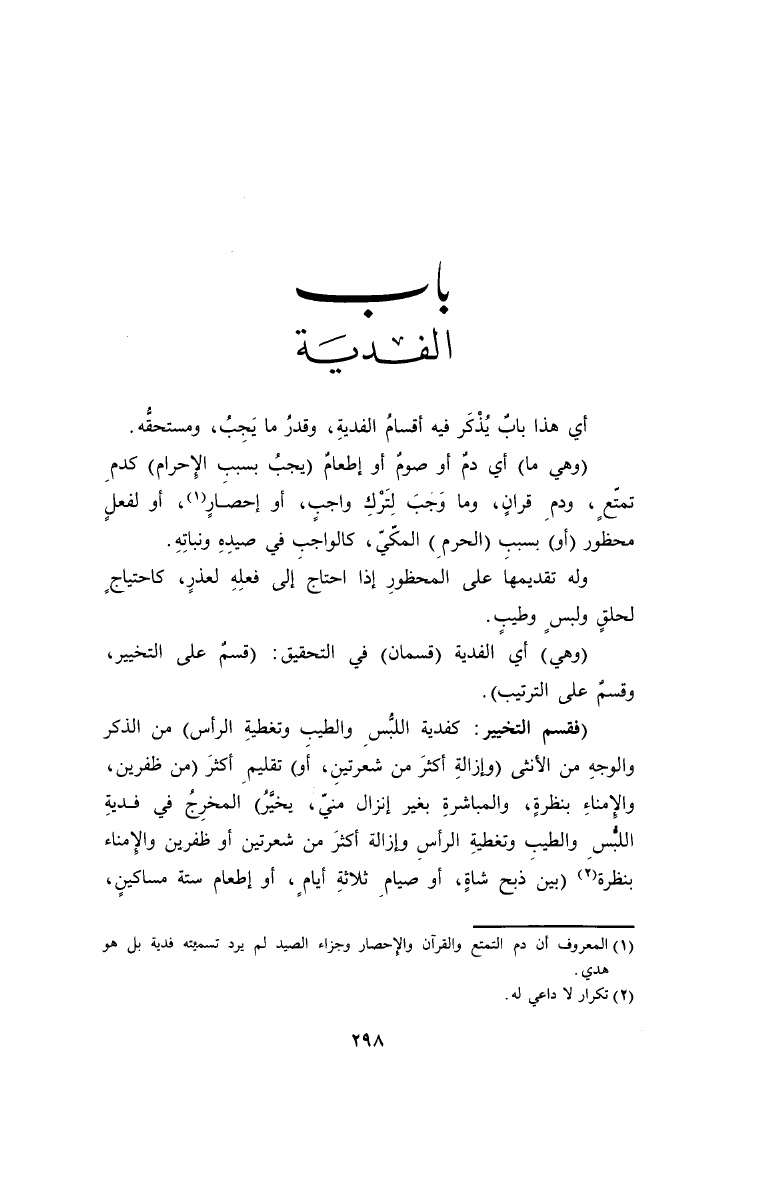 باب
الفدية
أي هذا بابٌ يُذْكَر فيه أقسامُ الفديةِ، وقدرُ ما يَجِبُ، ومستحقُّه.
(وهي ما) أي دمٌ أو صومٌ أو إطعامٌ (يجبُ بسببِ الإحرام) كدمِ
تمتّعٍ، ودمِ قرانٍ، وما وَجَبَ لِتَرْكِ واجبٍ، أو إحصارٍ(١)، أو لفعلِ
محظورٍ (أو) بسببِ (الحرمِ) المكّيّ، كالواجبِ في صيدِهِ ونباتِهِ.
وله تقديمها على المحظورِ إذا احتاج إلى فعلِهِ لعذرٍ، كاحتياجٍ
لحلقٍ ولبسٍ وطيبٍ.
(وهي) أي الفدية (قسمان) في التحقيق: (قسمٌ على التخيير،
وقسمٌ على الترتيب).
(فقسم التخيير: كفدية اللبُسِ والطيبِ وتغطيةِ الرأس) من الذكر
والوجهِ من الأنثى (وإزالةِ أكثرَ من شعرتينِ، أو) تقليمِ أكثرَ (من ظفرين،
والإمناءِ بنظرةٍ، والمباشرةِ بغير إنزال منيّ، يخيَّرُ) المخرجُ في فديةِ
اللُبْسِ والطيبِ وتغطيةِ الرأسِ وإزالة أكثرَ من شعرتين أو ظفرين والإمناء
بنظرة(٢) (بين ذبح شاةٍ، أو صيامِ ثلاثةِ أيامٍ، أو إطعام ستة مساكينٍ،
(١) المعروف أن دم التمتع والقرآن والإحصار وجزاء الصيد لم يرد تسميته فدية بل هو
هدي.
(٢) تكرار لا داعي له.
٢٩٨